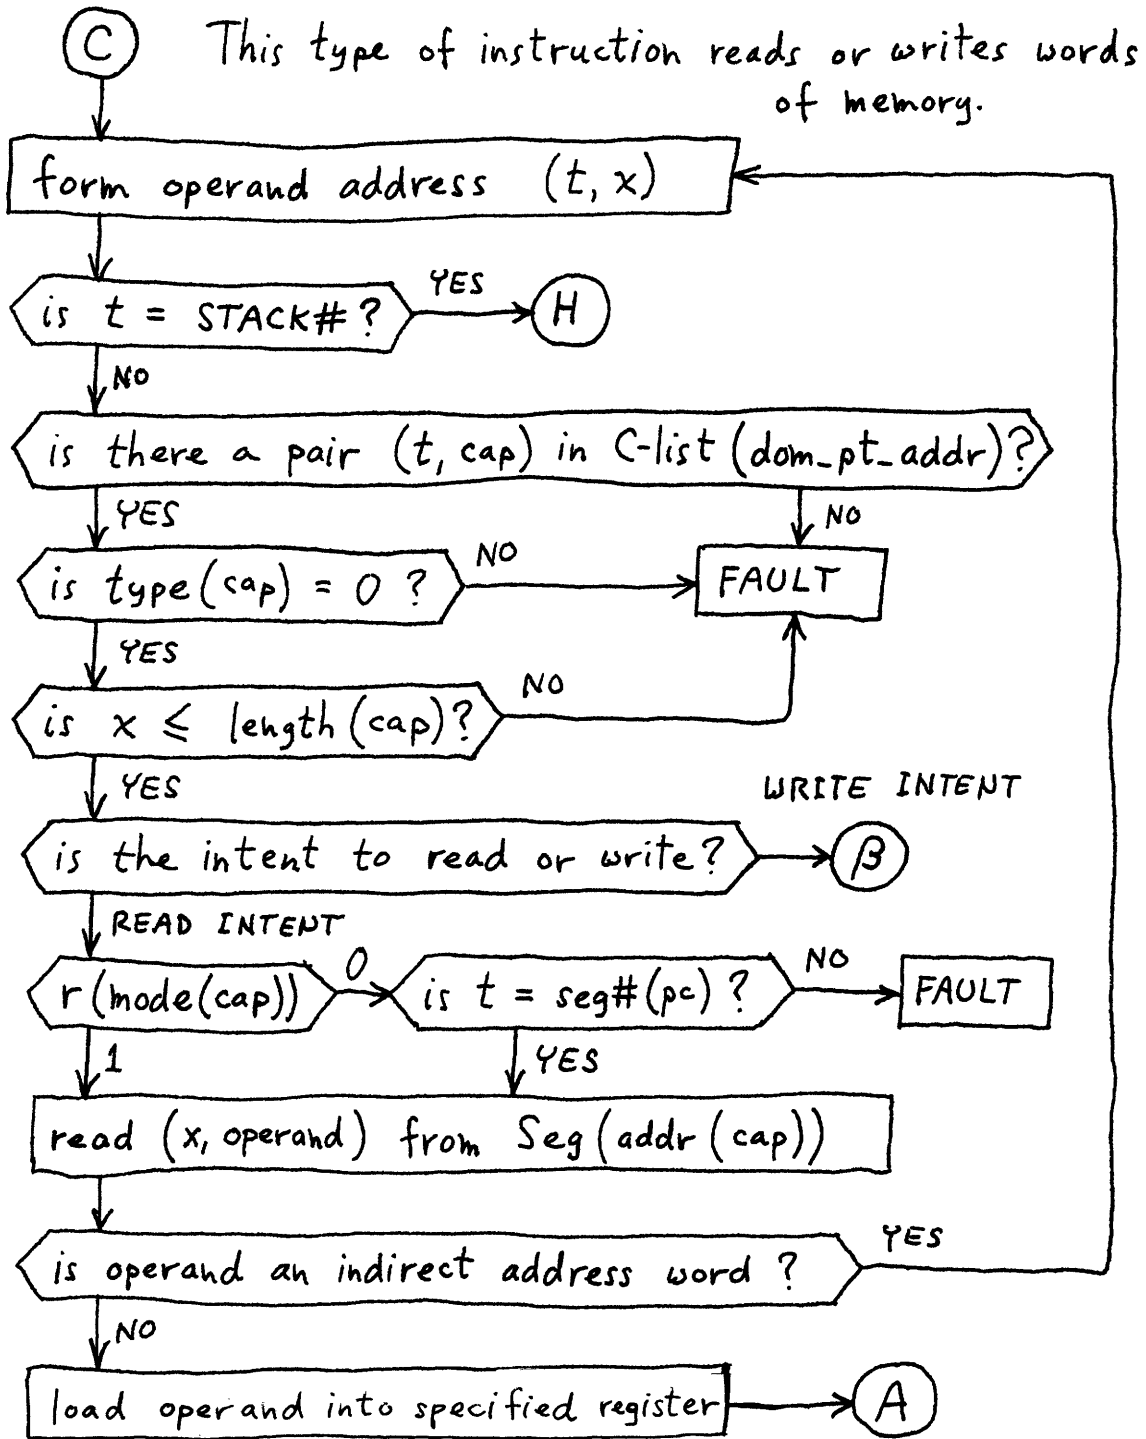 C
This type of instruction reads or writes words
of memory.
form operand address (t, x)
is t = STACK# ?
YES
H
NO
is there a pair (t, cap) in C-list (dom_pt_addr)?
YES
NO
is type(cap) = 0 ?
NO
FAULT
YES
is x ≤ length(cap)?
NO
YES
WRITE INTENT
is the intent to read or write?
β
READ INTENT
r(mode(cap))
0
is t = seg#(pc) ?
NO
FAULT
1
YES
read (x, operand) from Seg(addr(cap))
is operand an indirect address word ?
YES
NO
load operand into specified register
A